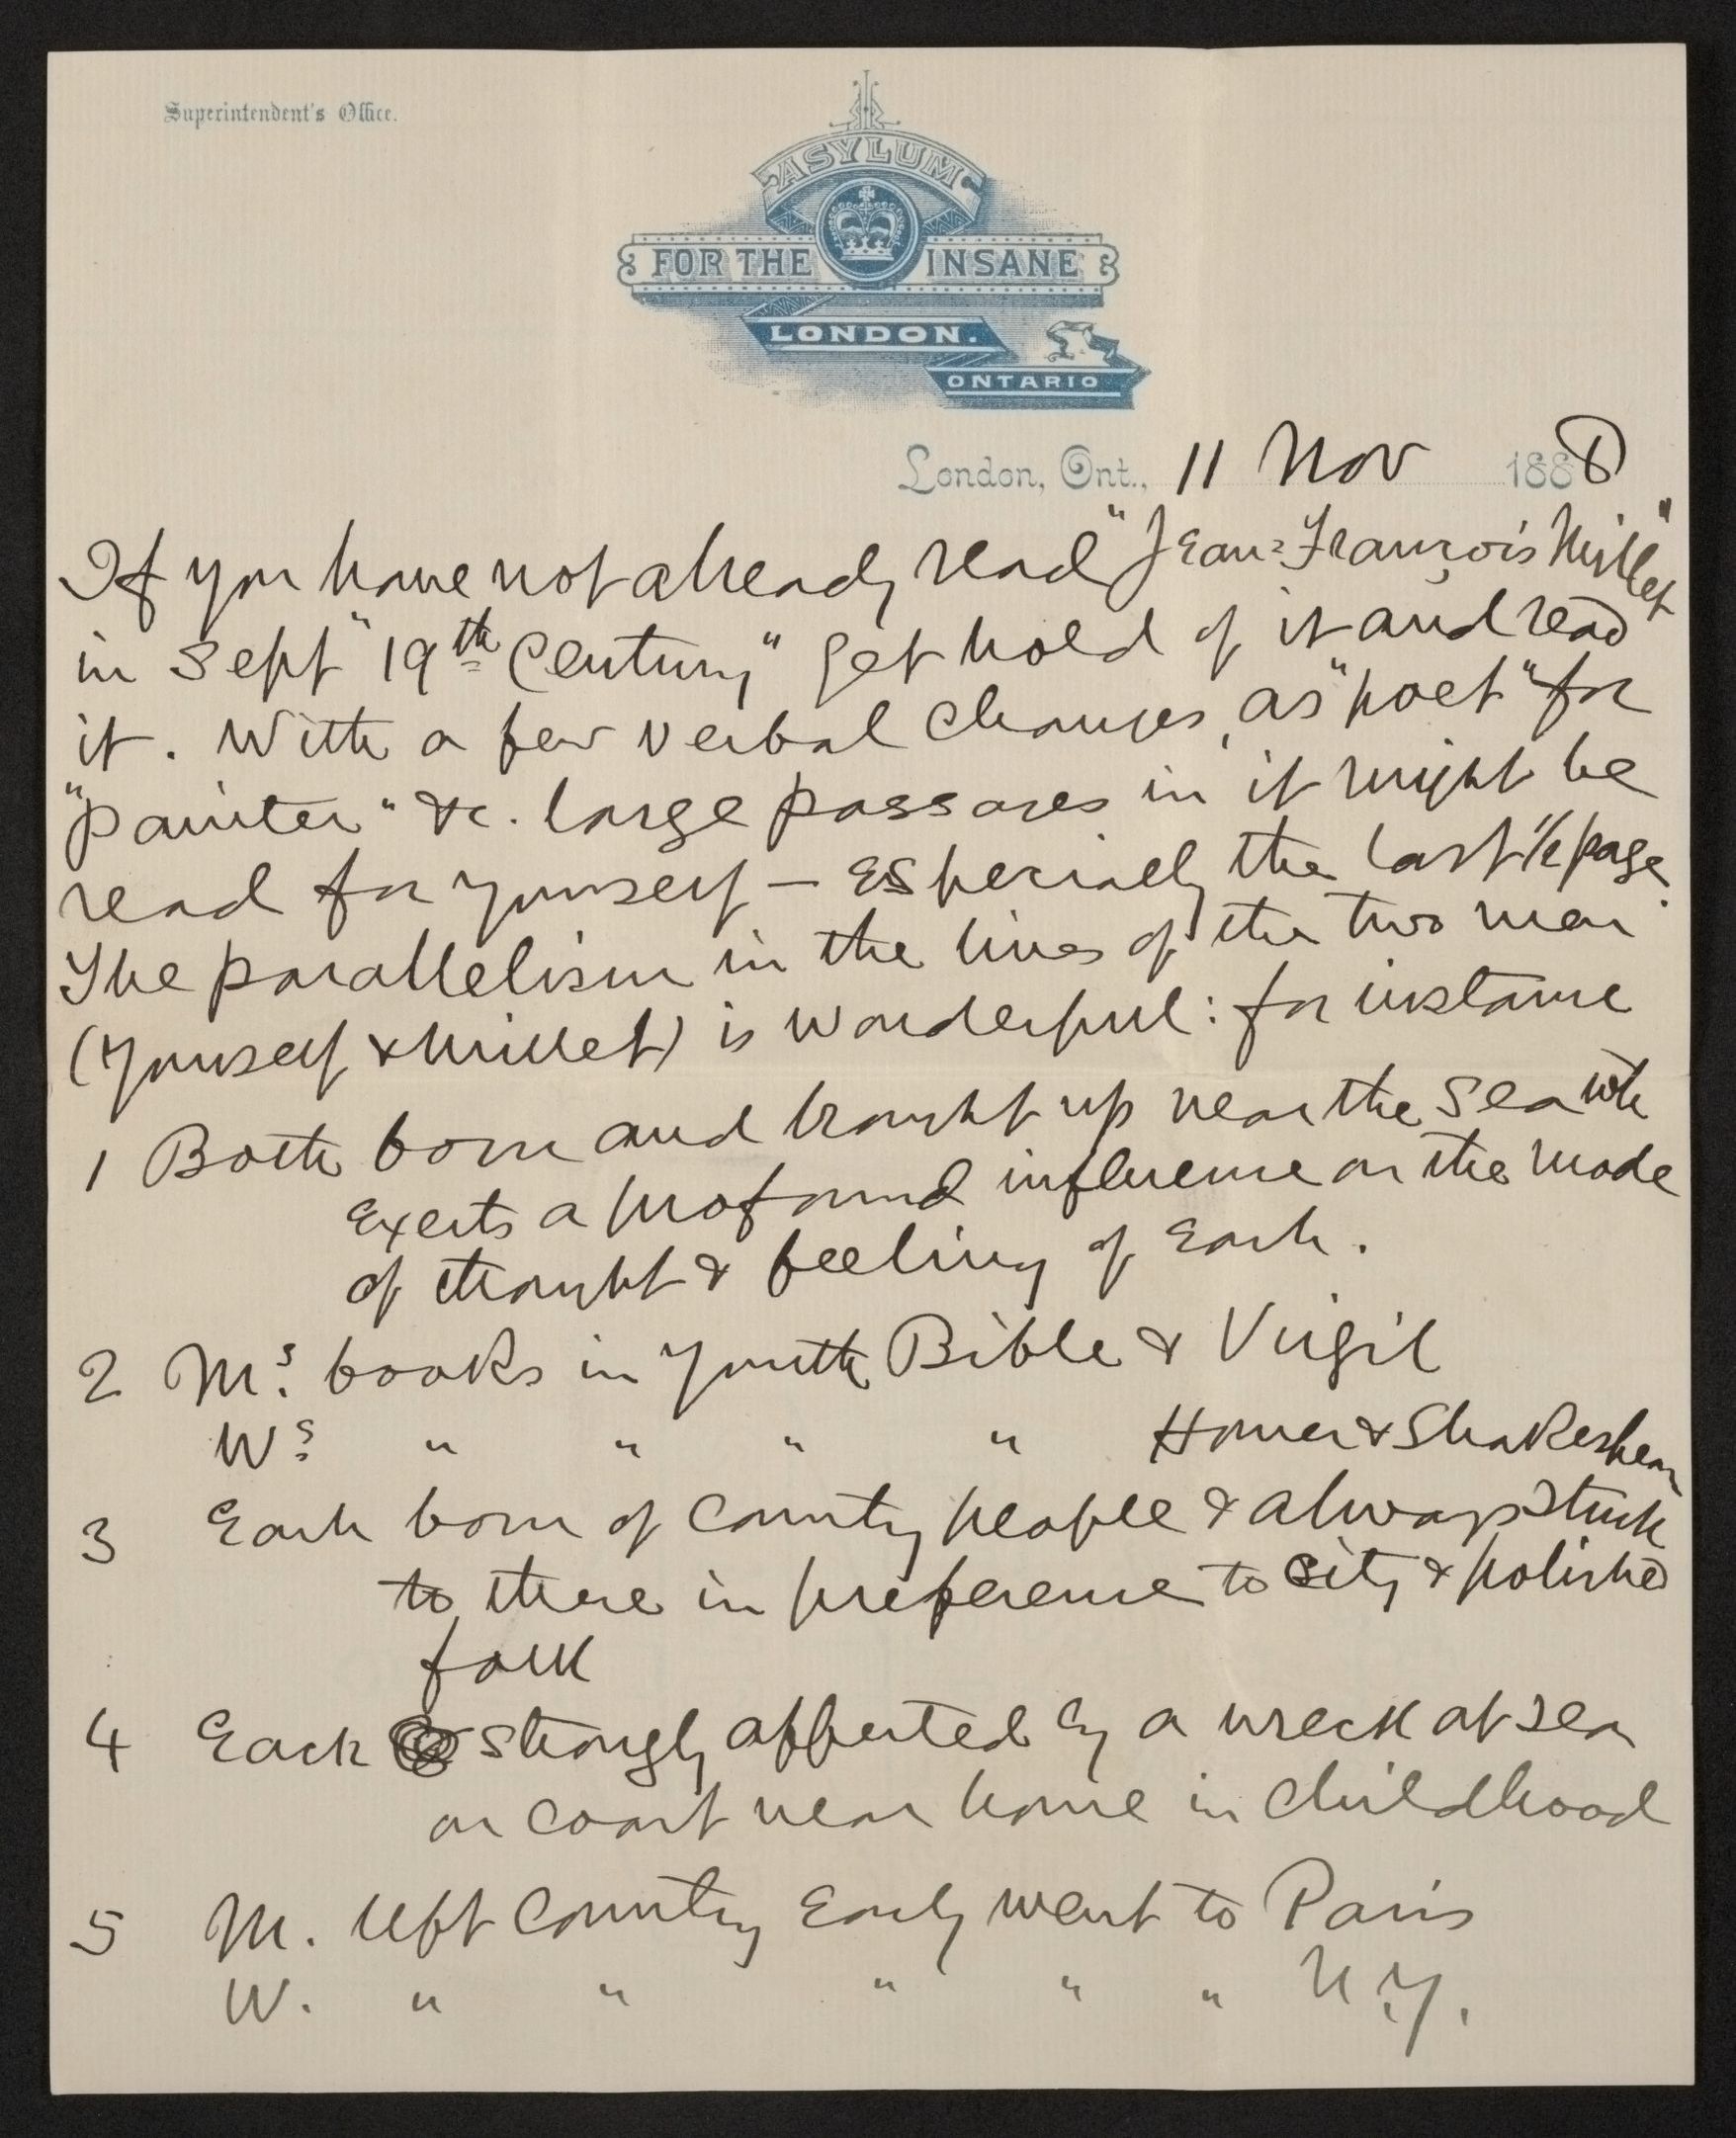 Superintendent's Office.
ASYLUM
FOR THE INSANE
LONDON.
ONTARIO
London, Ont., 11 Nov 1888
If you have not already read "Jean-François Millet"
in Sept "19th Century" get hold of it and read
it. With a few verbal changes, as "poet" for
"painter" &c. large passages in it might be
read for yourself — Especially the last 1/2 page.
The parallelism in the lives of the two men
(yourself & Millet) is wonderful: for instance
1 Both born and brought up near the sea wh
exerts a profound influence on the mode
of thought & feeling of Each.
2 M's books in youth Bible & Virgil
W's " " " " Homer & Shakespear
3 Each born of country people & always stuck
to these in preference to city & polished
folk
4 Each strongly affected by a wreck at sea
on coast near home in childhood
5 M. left country Early went to Paris
W. " " " " " N.Y.